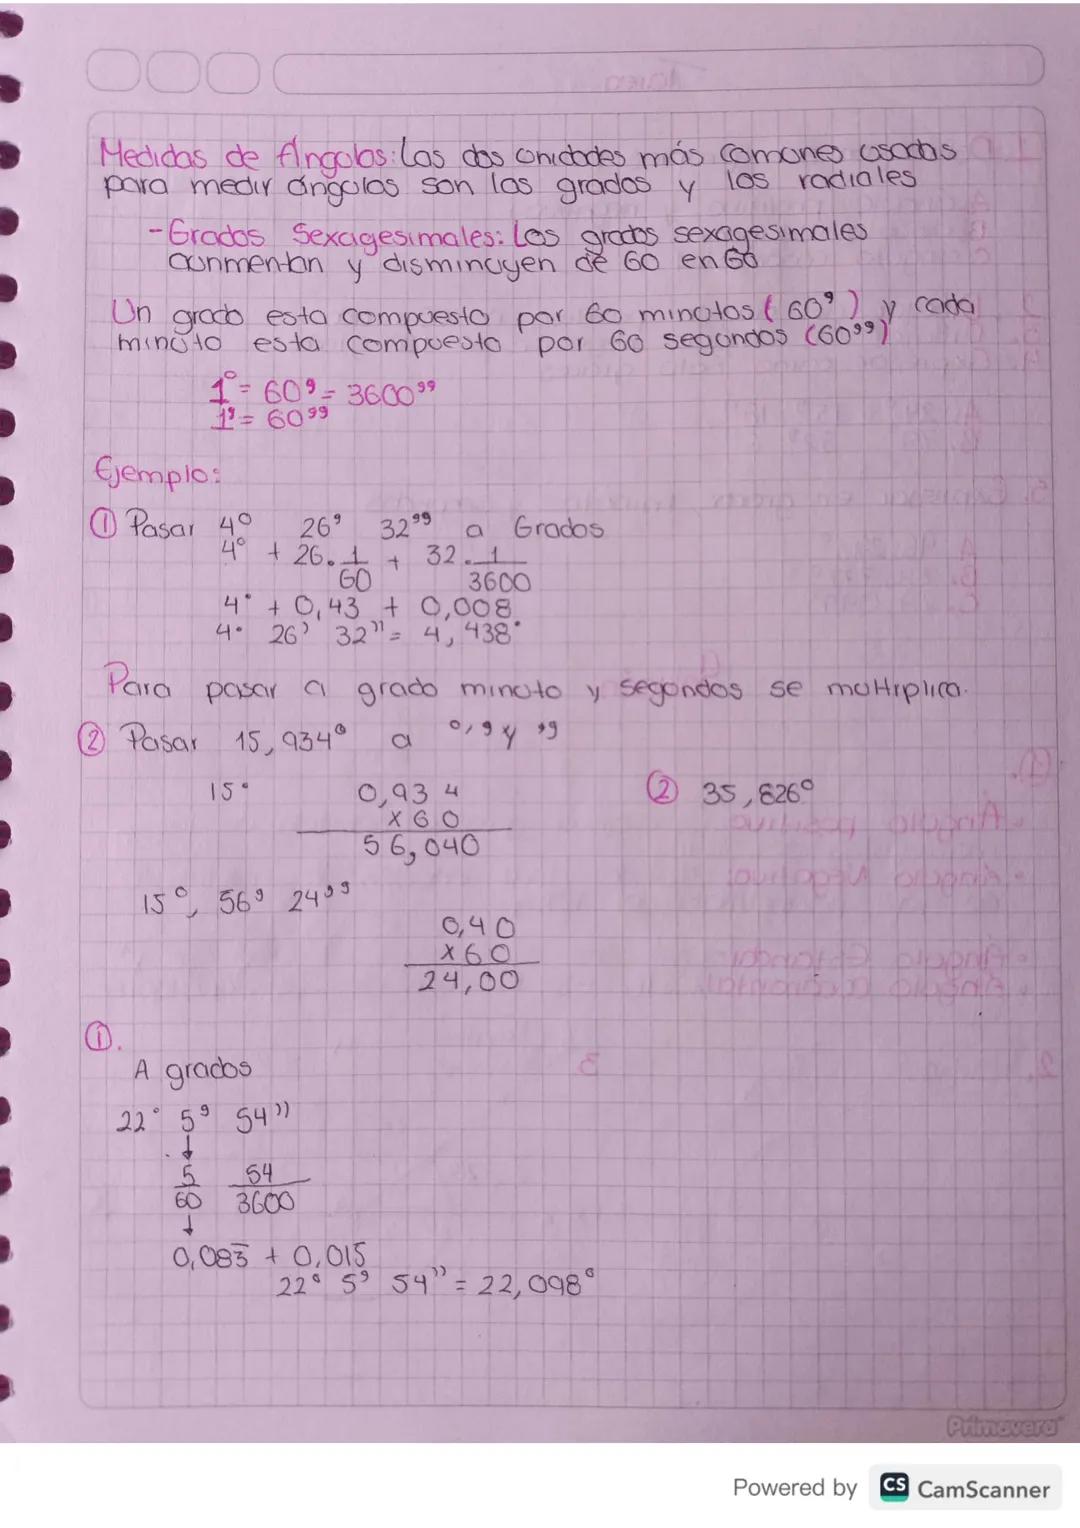 Medidas de Ángulos: Las dos unidades más comunes usadas
para medir ángulos son los grados y los radiales
- Grados Sexagesimales: Los grados sexagesimales
aunmentan y disminuyen de 60 en 60
Un grado esta compuesto por 60 minutos (60') y cada
minuto esta compuesto por 60 segundos (60'')
1° = 60' = 3600''
1' = 60''
Ejemplo:
① Pasar 4° 26' 32'' a Grados
4° + 26. 1/60 + 32. 1/3600
4° + 0,43 + 0,008
4° 26' 32'' = 4,438°
Para pasar a grado minuto y segundos se multiplica.
② Pasar 15,934° a °, ' y ''
15° 0,934 ② 35,826°
x60
56,040
15°, 56' 24''
0,40
x60
24,00
①.
A grados
22° 5' 54''
↓
5/60 54/3600
↓
0,083 + 0,015
22° 5' 54'' = 22,098°
Primavera
Powered by CS CamScanner